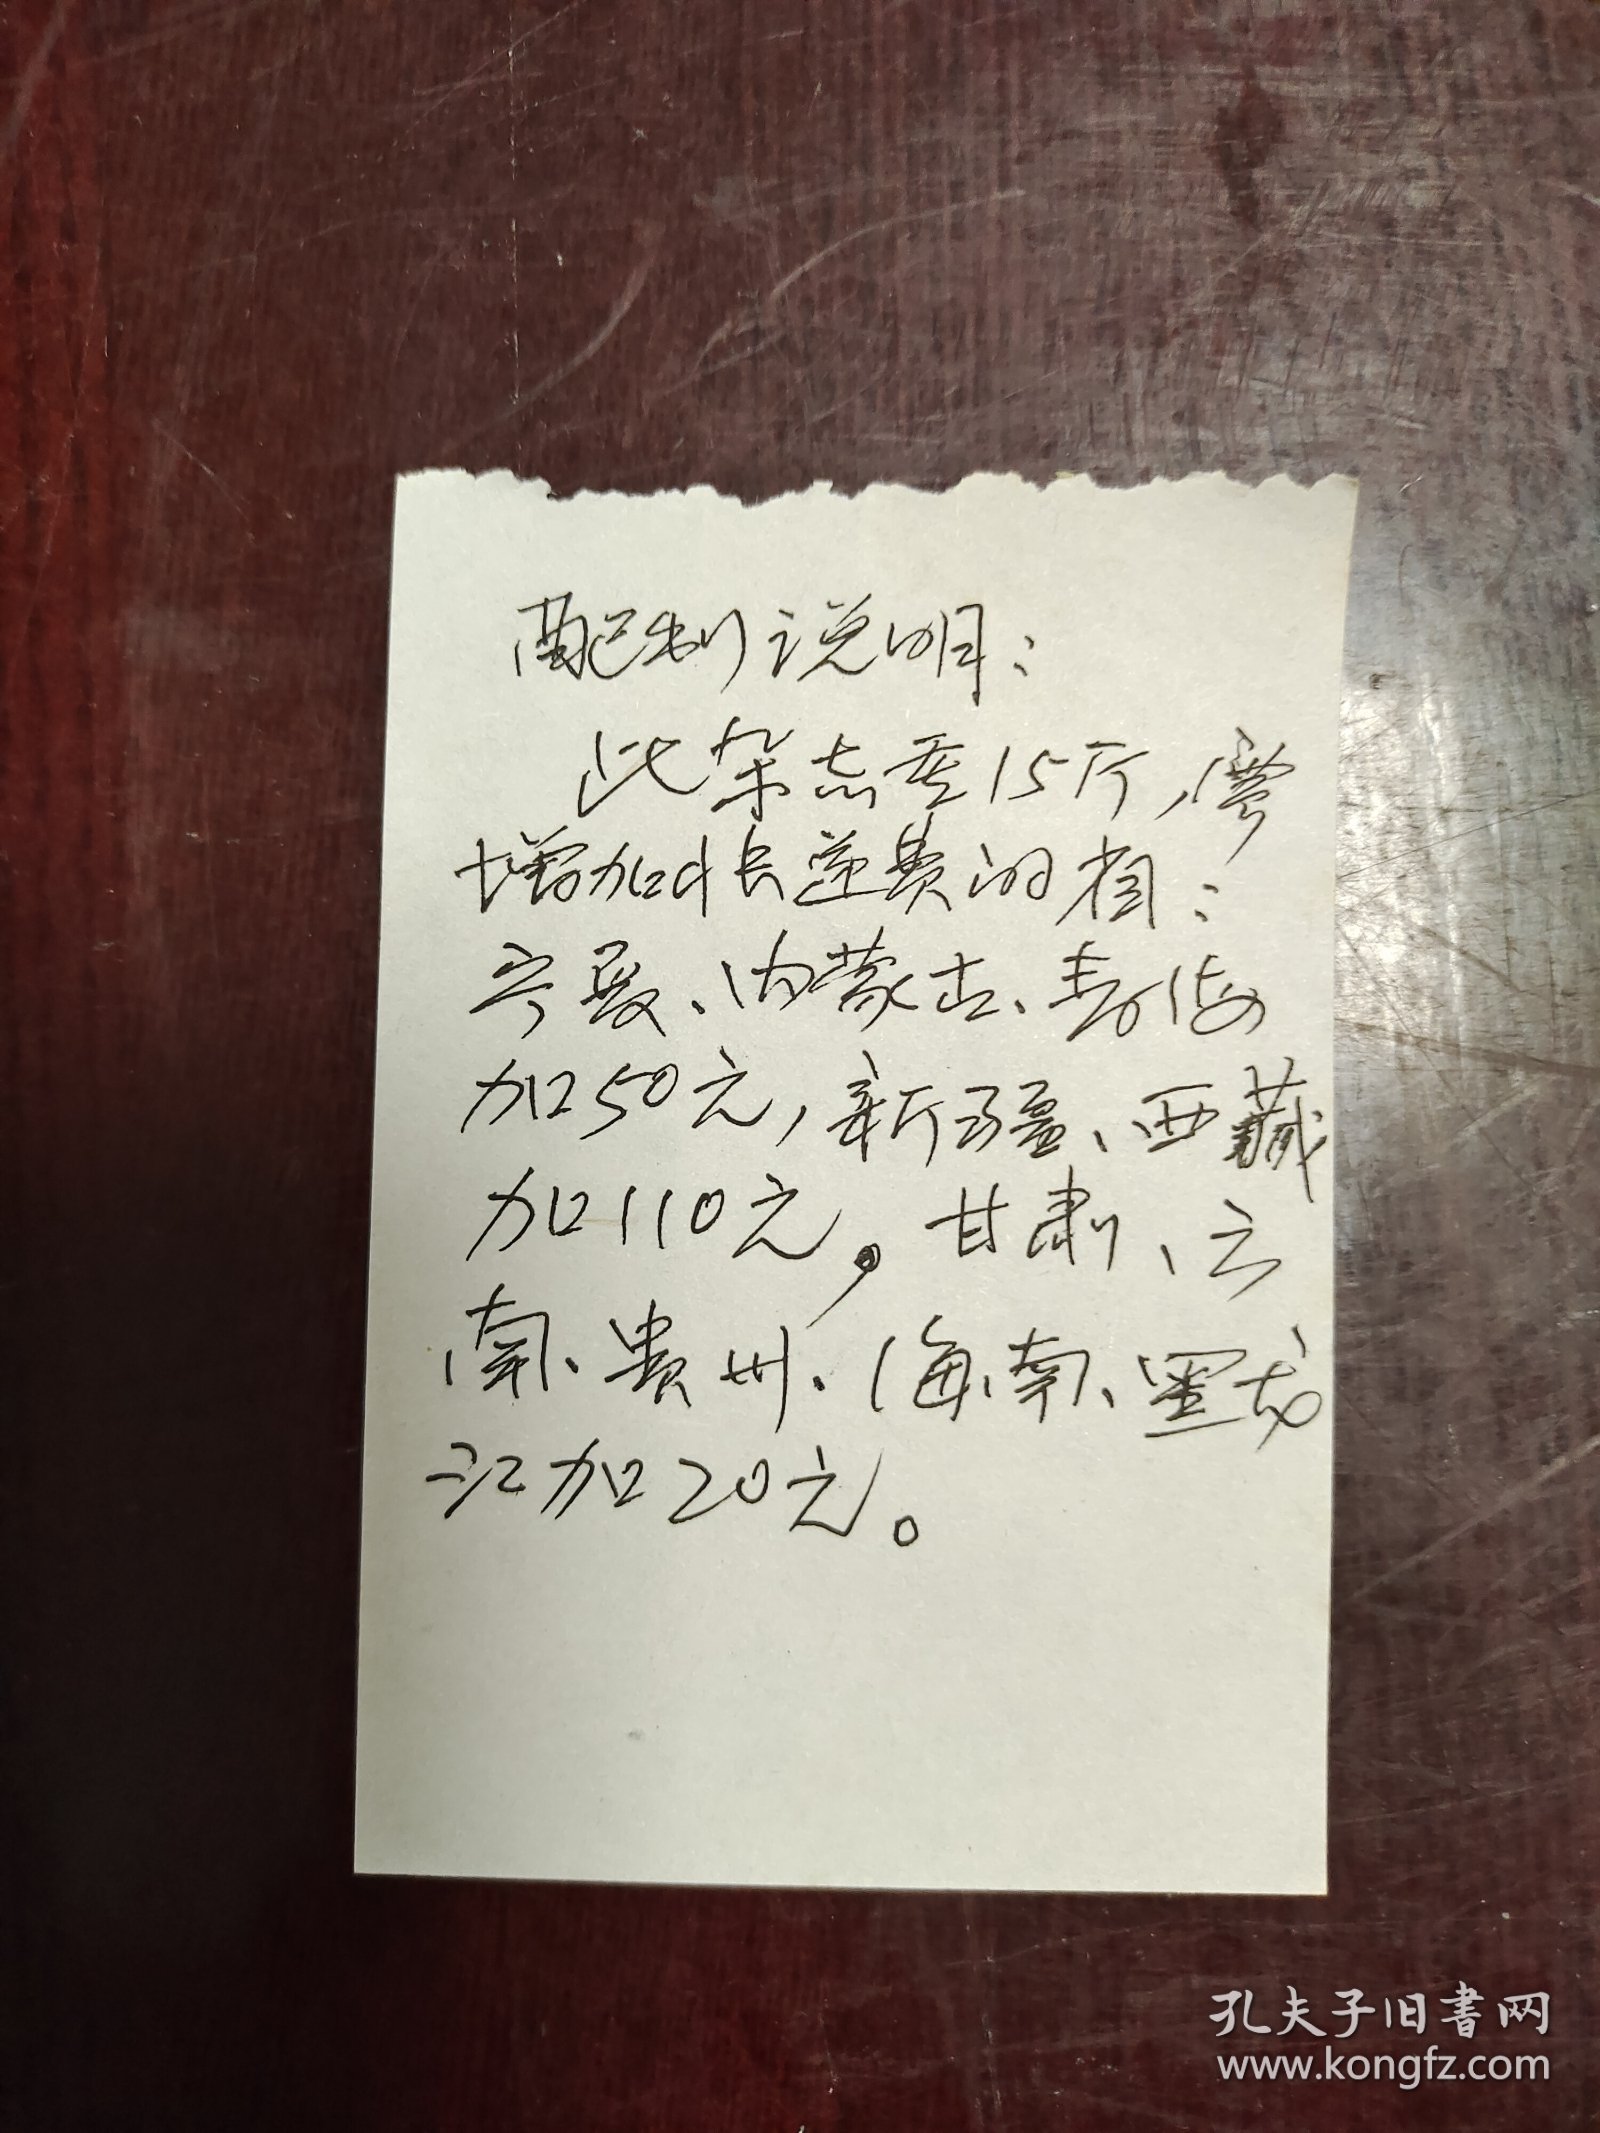 配制说明：
此杂志重15斤，需
增加快递费的省：
宁夏、内蒙古、青海
加50元，新疆、西藏
加110元。甘肃、云
南、贵州、海南、黑龙
江加20元。
孔夫子旧書网
www.kongfz.com